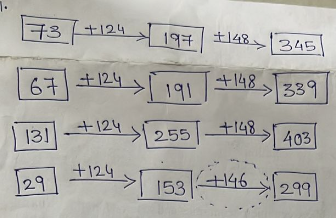 1.
73 +124 197 +148 345
67 +124 191 +148 339
131 +124 255 +148 403
29 +124 153 +146 299